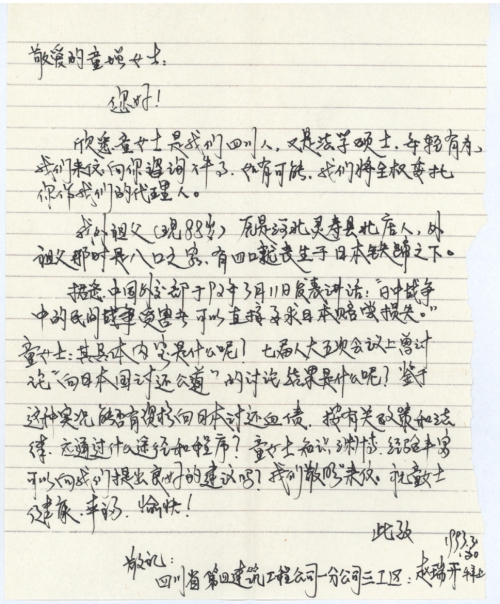 敬爱的童增女士：
您好！
欣悉童女士是我们四川人，又是法学硕士，年轻有为，
我们来信向你咨询一件事，如有可能，我们将全权委托
你作我们的代理人。
我外祖父（现88岁）原是河北灵寿县北店人，外
祖父那时是八口之家，有四口就丧生于日本铁蹄之下。
据悉，中国外交部于92年3月11日发表讲话：“日中战争
中的民间战争受害者可以直接要求日本赔偿损失。”
童女士：其具体内容是什么呢？七届人大五次会议上曾讨
论“向日本国讨还公道”的讨论结果是什么呢？鉴于
这种实况能否有资格向日本讨还血债，按有关政策和法
律，应通过什么途径和程序？童女士知识渊博，经验丰富
可以向我们提出良好的建议吗？我们敬盼来信。祝童女士
健康、幸福、愉快！
此致
敬礼：
1993.3.30
四川省第四建筑工程公司一分公司三工区：赵瑞开拜上